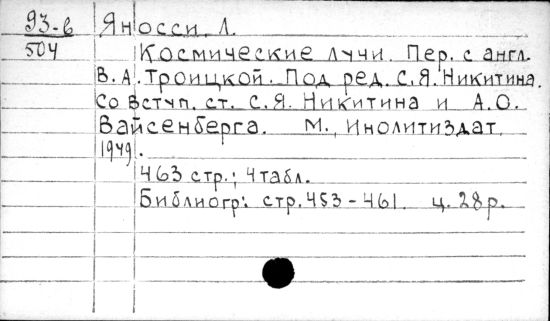 93-в Яносси, Л.
504 Космические лучи. Пер. с англ.
В.А. Троицкой. Под ред. С.Я. Никитина.
Со вступ. ст. С.Я. Никитина и А.О.
Вайсенберга. М., Инолитиздат,
1949.
463 стр.; 4 табл.
Библиогр: стр. 453-461. ц. 28р.